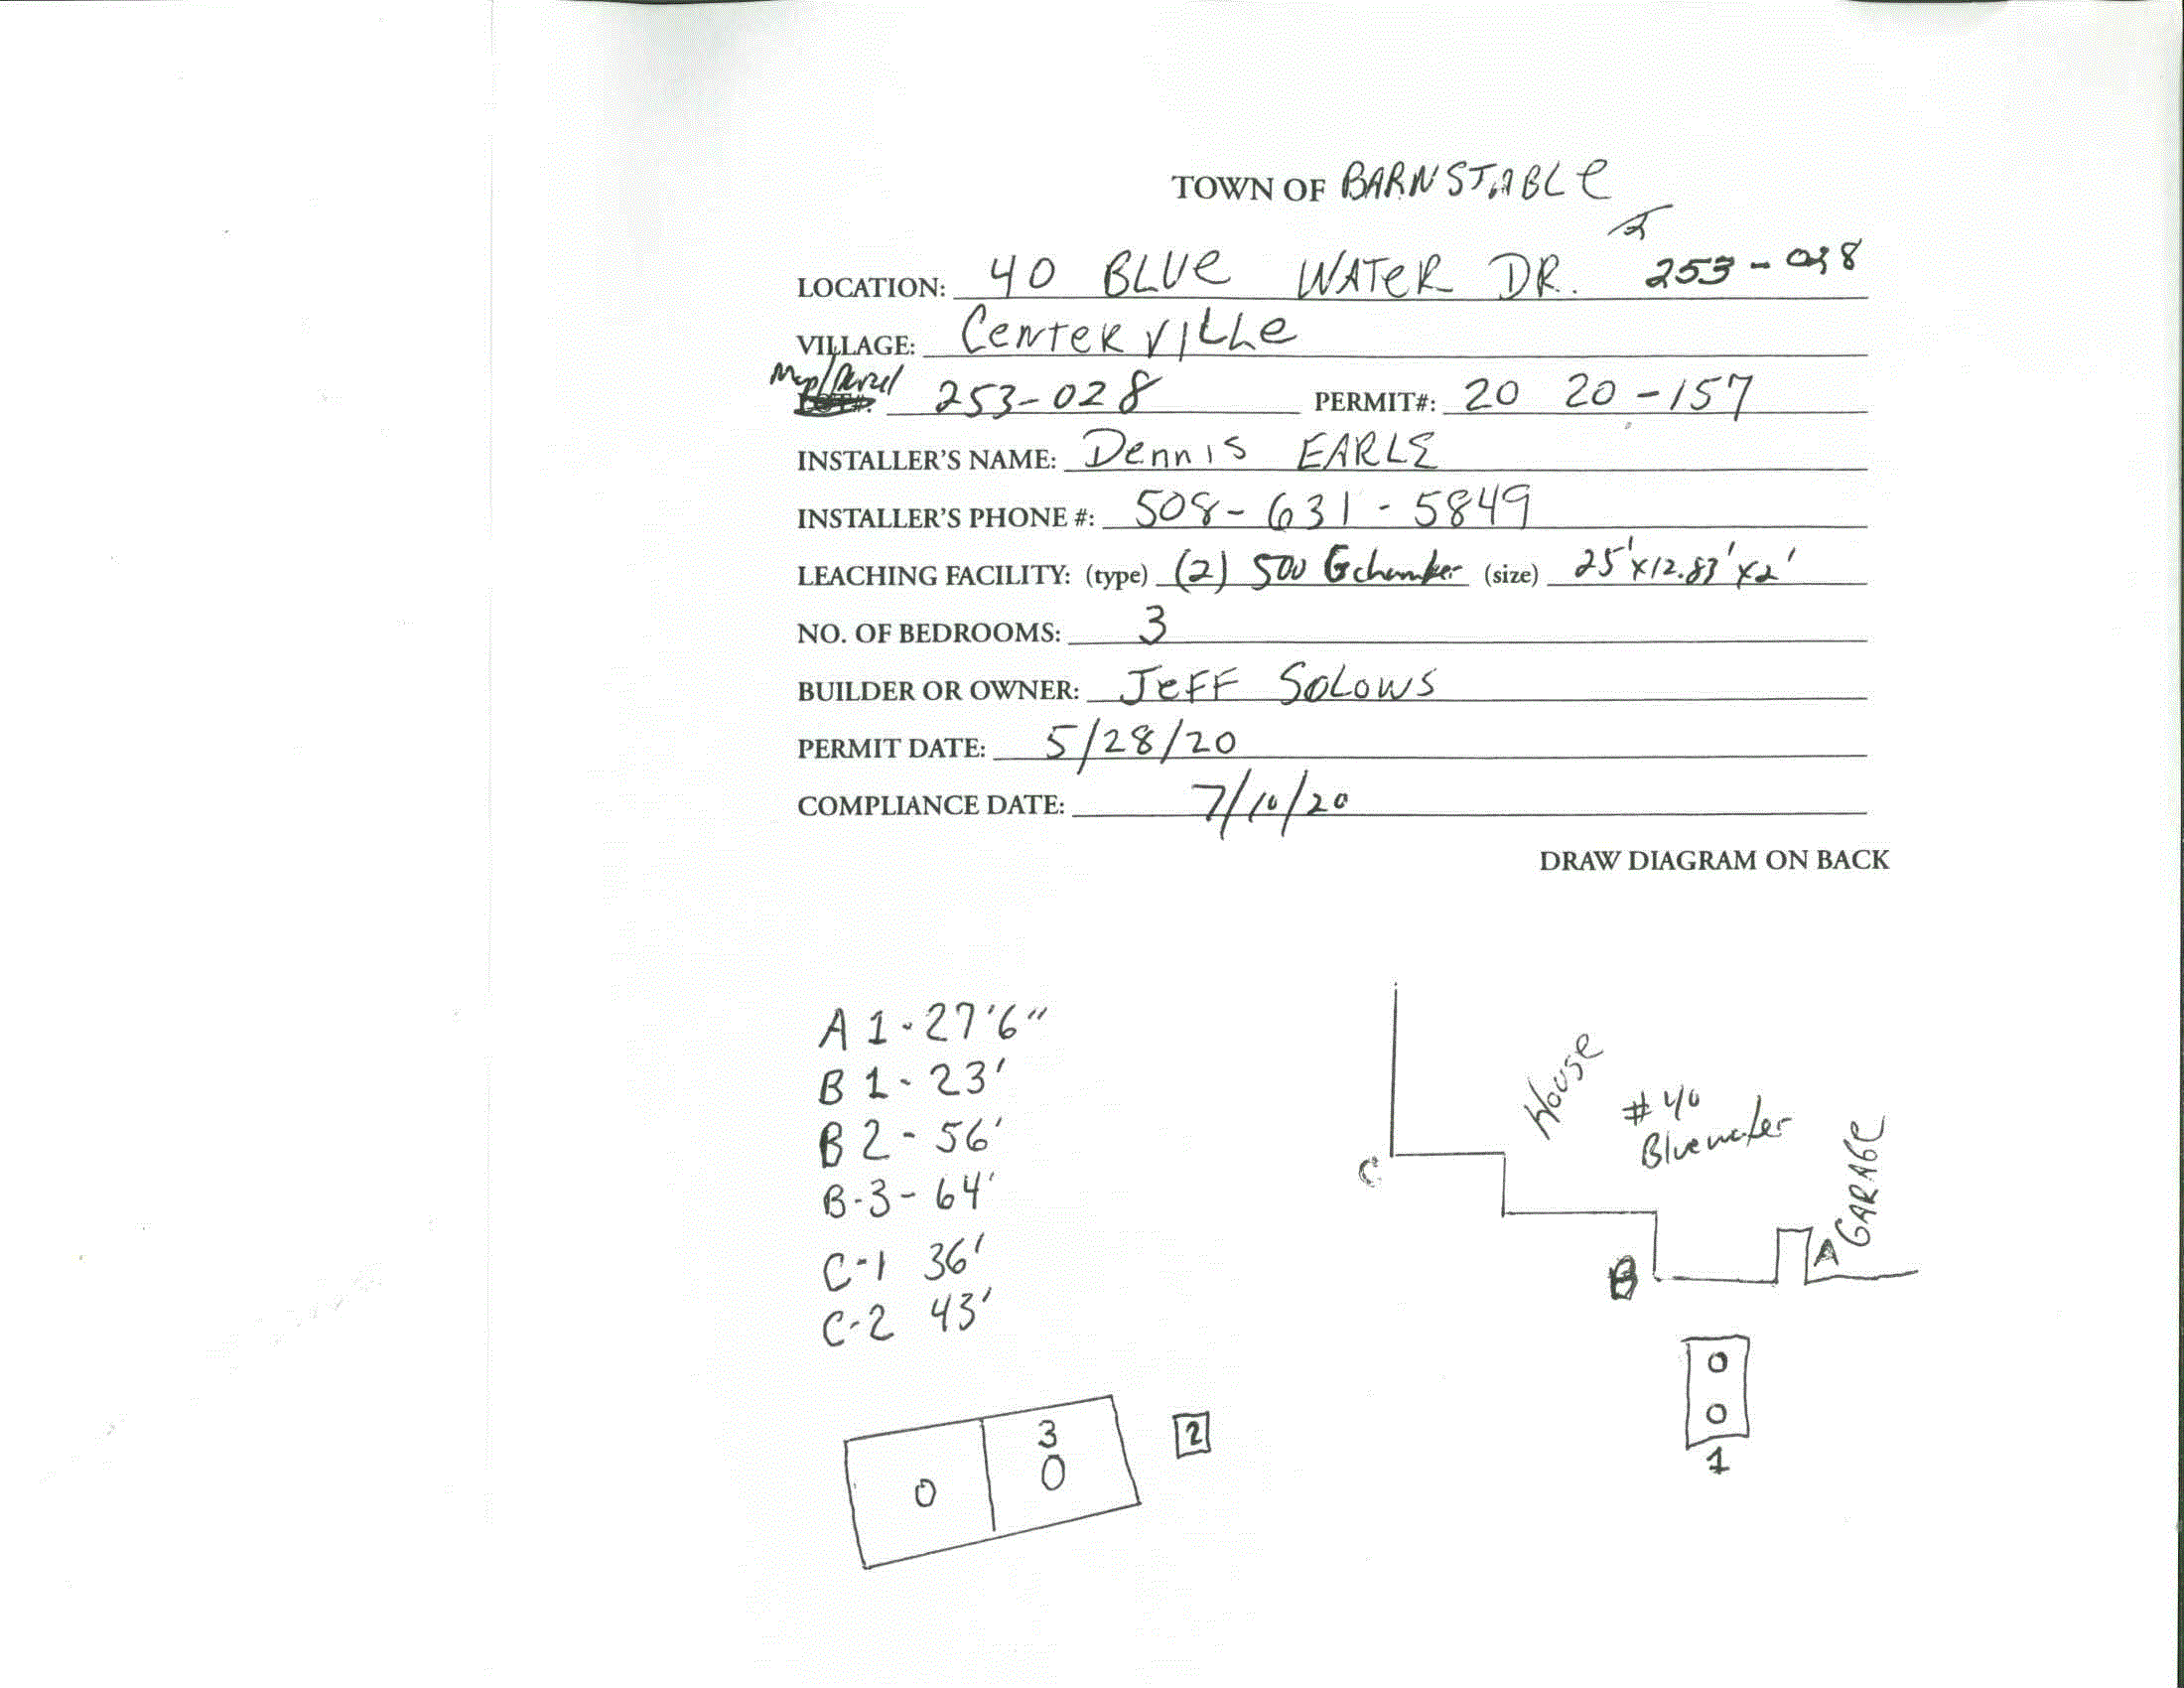 TOWN OF BARNSTABLE
LOCATION: 40 BLUE WATER DR. 253-028
VILLAGE: CENTERVILLE
Map/Parcel LOT#: 253-028 PERMIT#: 20 20-157
INSTALLER'S NAME: Dennis EARLE
INSTALLER'S PHONE #: 508-631-5849
LEACHING FACILITY: (type) (2) 500 G chamber (size) 25'x12.83'x2'
NO. OF BEDROOMS: 3
BUILDER OR OWNER: JEFF SOLOWS
PERMIT DATE: 5/28/20
COMPLIANCE DATE: 7/10/20
DRAW DIAGRAM ON BACK
A 1-27'6"
B 1-23'
B 2-56'
B-3-64'
C-1 36'
C-2 43'
House
#40
Bluewater
GARAGE
C
B
A
O
O
1
3
O
O
2